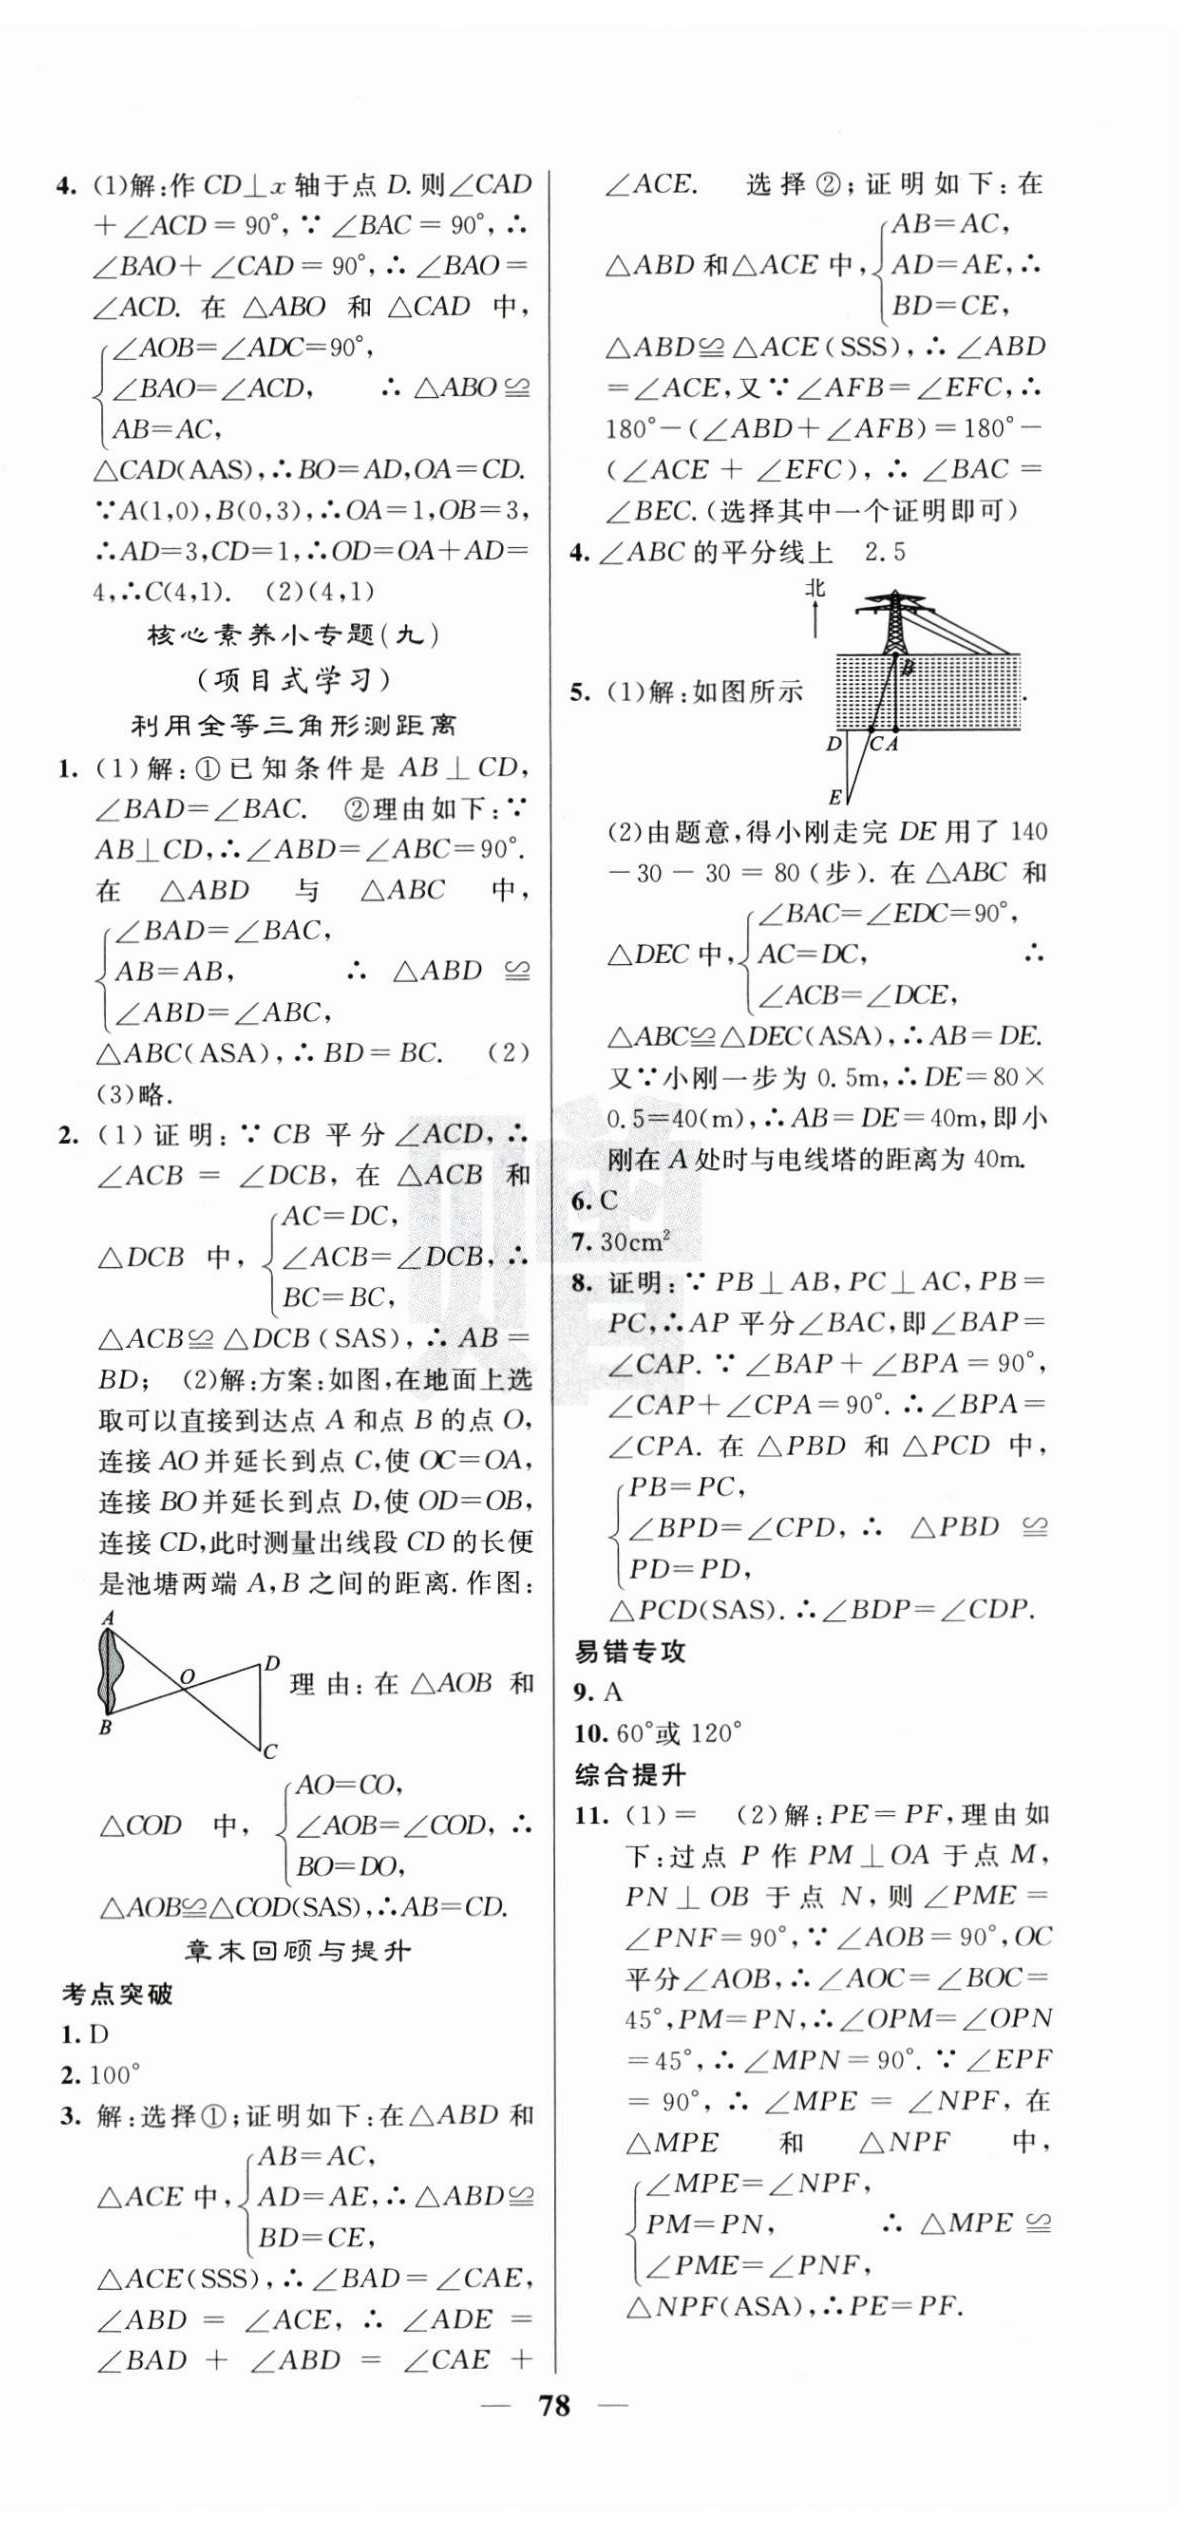 4. (1)解:作 CD⊥x 轴于点 D. 则∠CAD
+∠ACD=90°,∵∠BAC=90°,∴
∠BAO+∠CAD=90°,∴∠BAO=
∠ACD. 在 △ABO 和 △CAD 中,
∠AOB=∠ADC=90°,
∠BAO=∠ACD, ∴△ABO≌
AB=AC,
△CAD(AAS),∴BO=AD,OA=CD.
∵A(1,0),B(0,3),∴OA=1,OB=3,
∴AD=3,CD=1,∴OD=OA+AD=
4,∴C(4,1). (2)(4,1)
核心素养小专题(九)
(项目式学习)
利用全等三角形测距离
1. (1)解:①已知条件是 AB⊥CD,
∠BAD=∠BAC. ②理由如下:∵
AB⊥CD,∴∠ABD=∠ABC=90°.
在 △ABD 与 △ABC 中,
∠BAD=∠BAC,
AB=AB, ∴ △ABD ≌
∠ABD=∠ABC,
△ABC(ASA),∴BD=BC. (2)
(3)略.
2. (1)证明:∵CB 平分∠ACD,∴
∠ACB = ∠DCB,在 △ACB 和
AC=DC,
△DCB 中, ∠ACB=∠DCB,∴
BC=BC,
△ACB≌△DCB(SAS),∴AB=
BD; (2)解:方案:如图,在地面上选
取可以直接到达点 A 和点 B 的点 O,
连接 AO 并延长到点 C,使 OC=OA,
连接 BO 并延长到点 D,使 OD=OB,
连接 CD,此时测量出线段 CD 的长便
是池塘两端 A,B 之间的距离. 作图:
A
O
D
B
C
理由:在 △AOB 和
AO=CO,
△COD 中, ∠AOB=∠COD,∴
BO=DO,
△AOB≌△COD(SAS),∴AB=CD.
章末回顾与提升
考点突破
1. D
2. 100°
3. 解:选择①;证明如下:在△ABD 和
AB=AC,
△ACE 中, AD=AE,∴△ABD≌
BD=CE,
△ACE(SSS),∴∠BAD=∠CAE,
∠ABD = ∠ACE, ∴ ∠ADE =
∠BAD + ∠ABD = ∠CAE +
∠ACE. 选择②;证明如下:在
AB=AC,
△ABD 和△ACE 中, AD=AE,∴
BD=CE,
△ABD≌△ACE(SSS),∴∠ABD
=∠ACE,又∵∠AFB=∠EFC,∴
180°-(∠ABD+∠AFB)=180°-
(∠ACE + ∠EFC), ∴ ∠BAC =
∠BEC.(选择其中一个证明即可)
4. ∠ABC 的平分线上 2.5
北
5. (1)解:如图所示
B
D C A
E
.
(2)由题意,得小刚走完 DE 用了 140
-30-30=80(步). 在△ABC 和
∠BAC=∠EDC=90°,
△DEC 中, AC=DC, ∴
∠ACB=∠DCE,
△ABC≌△DEC(ASA),∴AB=DE.
又∵小刚一步为 0.5m,∴DE=80×
0.5=40(m),∴AB=DE=40m,即小
刚在 A 处时与电线塔的距离为 40m.
6. C
7. 30cm²
8. 证明:∵PB⊥AB,PC⊥AC,PB=
PC,∴AP 平分∠BAC,即∠BAP=
∠CAP. ∵∠BAP+∠BPA=90°,
∠CAP+∠CPA=90°. ∴∠BPA=
∠CPA. 在 △PBD 和 △PCD 中,
PB=PC,
∠BPD=∠CPD, ∴ △PBD ≌
PD=PD,
△PCD(SAS). ∴∠BDP=∠CDP.
易错专攻
9. A
10. 60°或 120°
综合提升
11. (1)= (2)解:PE=PF,理由如
下:过点 P 作 PM⊥OA 于点 M,
PN⊥OB 于点 N,则∠PME=
∠PNF=90°,∵∠AOB=90°,OC
平分∠AOB,∴∠AOC=∠BOC=
45°,PM=PN,∴∠OPM=∠OPN
=45°,∴∠MPN=90°. ∵∠EPF
=90°,∴∠MPE=∠NPF,在
△MPE 和 △NPF 中,
∠MPE=∠NPF,
PM=PN, ∴ △MPE ≌
∠PME=∠PNF,
△NPF(ASA),∴PE=PF.
— 78 —